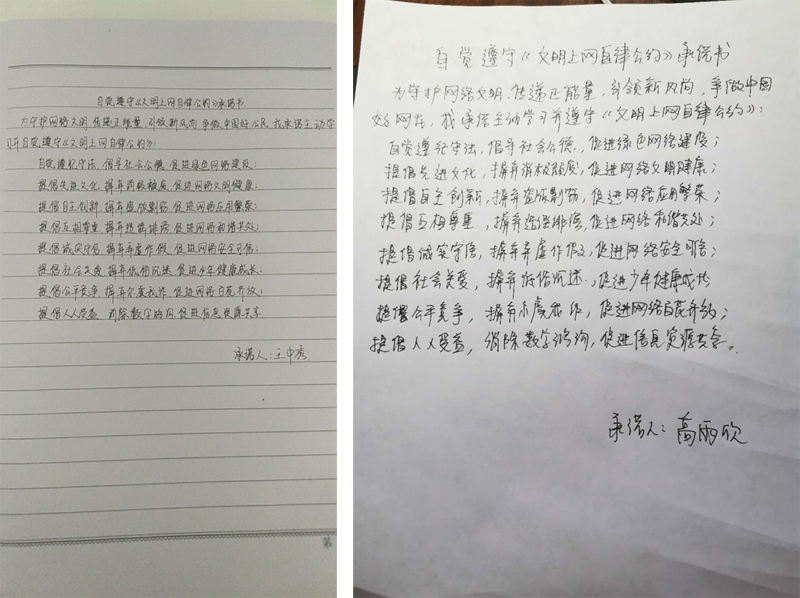 自觉遵守《文明上网自律公约》承诺书
为守护网络文明,传递正能量,引领新风尚,争做中国好公民,我承诺主动学
习并自觉遵守《文明上网自律公约》:
自觉遵纪守法,倡导社会公德,促进绿色网络建设;
提倡先进文化,摒弃消极颓废,促进网络文明健康;
提倡自主创新,摒弃盗版剽窃,促进网络应用繁荣;
提倡互相尊重,摒弃造谣诽谤,促进网络和谐共处;
提倡诚实守信,摒弃弄虚作假,促进网络安全可信;
提倡社会关爱,摒弃低俗沉迷,促进少年健康成长;
提倡公平竞争,摒弃尔虞我诈,促进网络百花齐放;
提倡人人受益,消除数字鸿沟,促进信息资源共享
承诺人:王中秀
第
自觉遵守《文明上网自律公约》承诺书
为守护网络文明,传递正能量,引领新风尚,争做中国
好网民,我承诺主动学习并遵守《文明上网自律公约》:
自觉遵纪守法,倡导社会公德,促进绿色网络建设;
提倡先进文化,摒弃消极颓废,促进网络文明健康;
提倡自主创新,摒弃盗版剽窃,促进网络应用繁荣;
提倡互相尊重,摒弃造谣诽谤,促进网络和谐共处;
提倡诚实守信,摒弃弄虚作假,促进网络安全可信;
提倡社会关爱,摒弃低俗沉迷,促进少年健康成长
提倡公平竞争,摒弃尔虞我诈,促进网络百花齐放;
提倡人人受益,消除数字鸿沟,促进信息资源共享。
承诺人:高雨欣